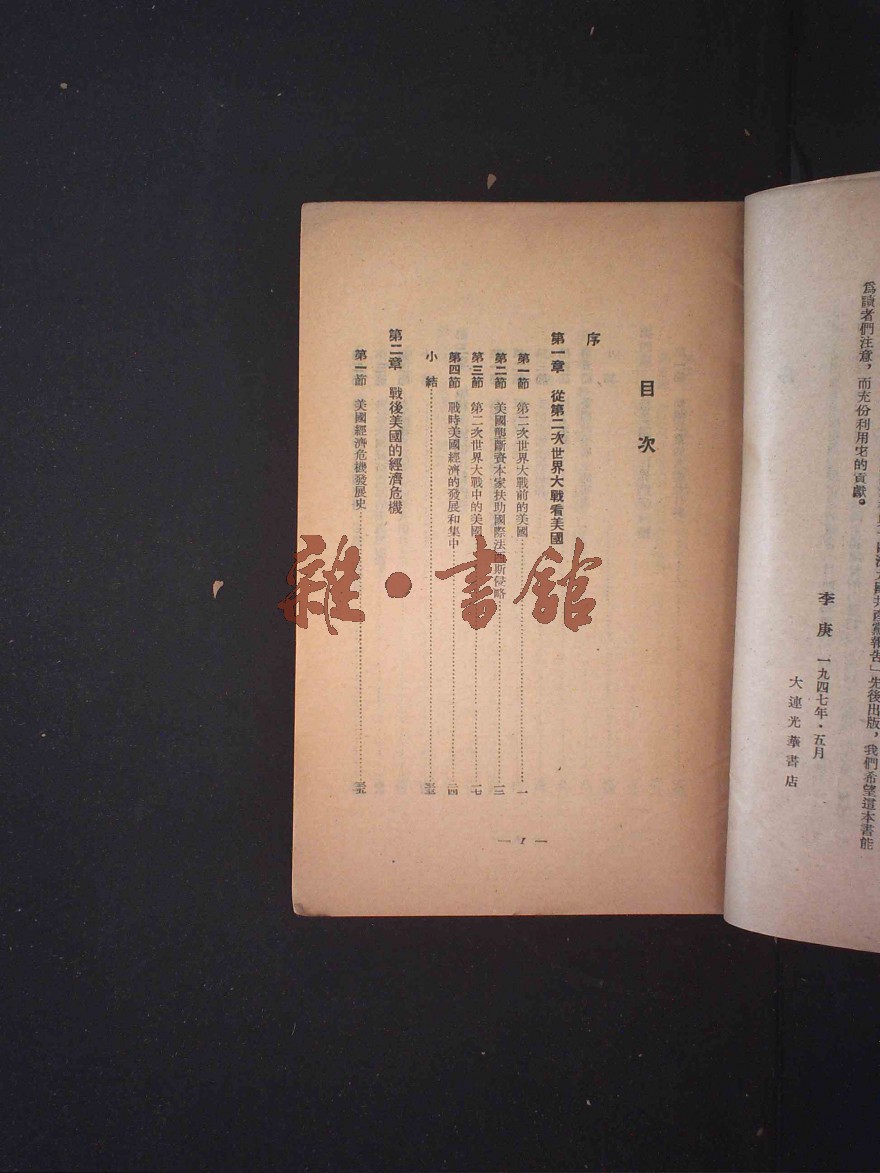 爲讀者們注意，而充份利用它的貢獻。
李庚 一九四七年·五月
大連光華書店
目次
序
第一章 從第二次世界大戰看美國
第一節 第二次世界大戰前的美國 一
第二節 美國壟斷資本家扶助國際法西斯侵略 一三
第三節 第二次世界大戰中的美國 一七
第四節 戰時美國經濟的發展和集中 二四
小結
第二章 戰後美國的經濟危機
第一節 美國經濟危機發展史
— 1 —
雜·書館